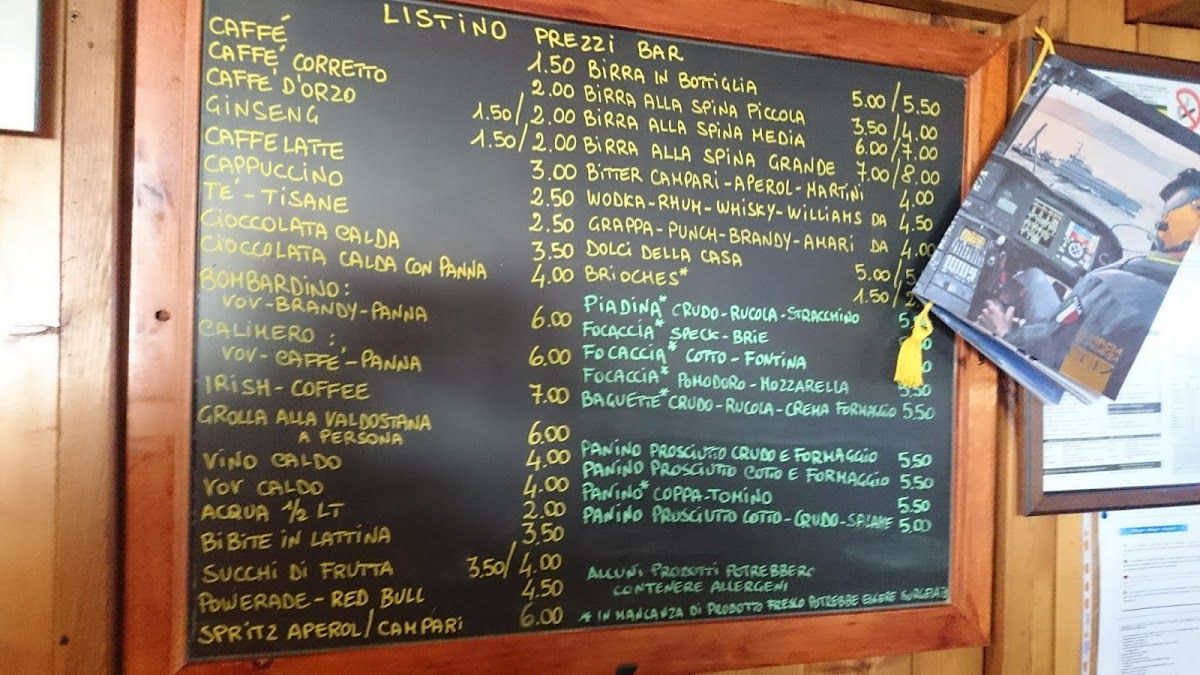 LISTINO PREZZI BAR
CAFFÉ 1.50
CAFFE' CORRETTO 2.00
CAFFE' D'ORZO 1.50/2.00
GINSENG 1.50/2.00
CAFFE LATTE 3.00
CAPPUCCINO 2.50
TE' - TISANE 2.50
CIOCCOLATA CALDA 3.50
CIOCCOLATA CALDA CON PANNA 4.00
BOMBARDINO:
VOV-BRANDY-PANNA 6.00
CALIMERO:
VOV-CAFFE'-PANNA 6.00
IRISH-COFFEE 7.00
GROLLA ALLA VALDOSTANA
A PERSONA 6.00
VINO CALDO 4.00
VOV CALDO 4.00
ACQUA 1/2 LT 2.00
BIBITE IN LATTINA 3.50
SUCCHI DI FRUTTA 3.50/4.00
POWERADE-RED BULL 4.50
SPRITZ APEROL/CAMPARI 6.00
BIRRA IN BOTTIGLIA 5.00/5.50
BIRRA ALLA SPINA PICCOLA 3.50/4.00
BIRRA ALLA SPINA MEDIA 6.00/7.00
BIRRA ALLA SPINA GRANDE 7.00/8.00
BITTER CAMPARI-APEROL-MARTINI 4.00
WODKA-RHUM-WHISKY-WILLIAMS DA 4.50
GRAPPA-PUNCH-BRANDY-AMARI DA 4.00
DOLCI DELLA CASA 5.00/
BRIOCHES* 1.50/
PIADINA* CRUDO-RUCOLA-STRACCHINO
FOCACCIA* SPECK-BRIE
FOCACCIA* COTTO-FONTINA
FOCACCIA* POMODORO-MOZZARELLA 5.50
BAGUETTE* CRUDO-RUCOLA-CREMA FORMAGGIO 5.50
PANINO PROSCIUTTO CRUDO E FORMAGGIO 5.50
PANINO PROSCIUTTO COTTO E FORMAGGIO 5.50
PANINO* COPPA-TOMINO 5.50
PANINO PROSCIUTTO COTTO-CRUDO-SALAME 5.00
ALCUNI PRODOTTI POTREBBERO
CONTENERE ALLERGENI
* IN MANCANZA DI PRODOTTO FRESCO POTREBBE ESSERE SURGELATO